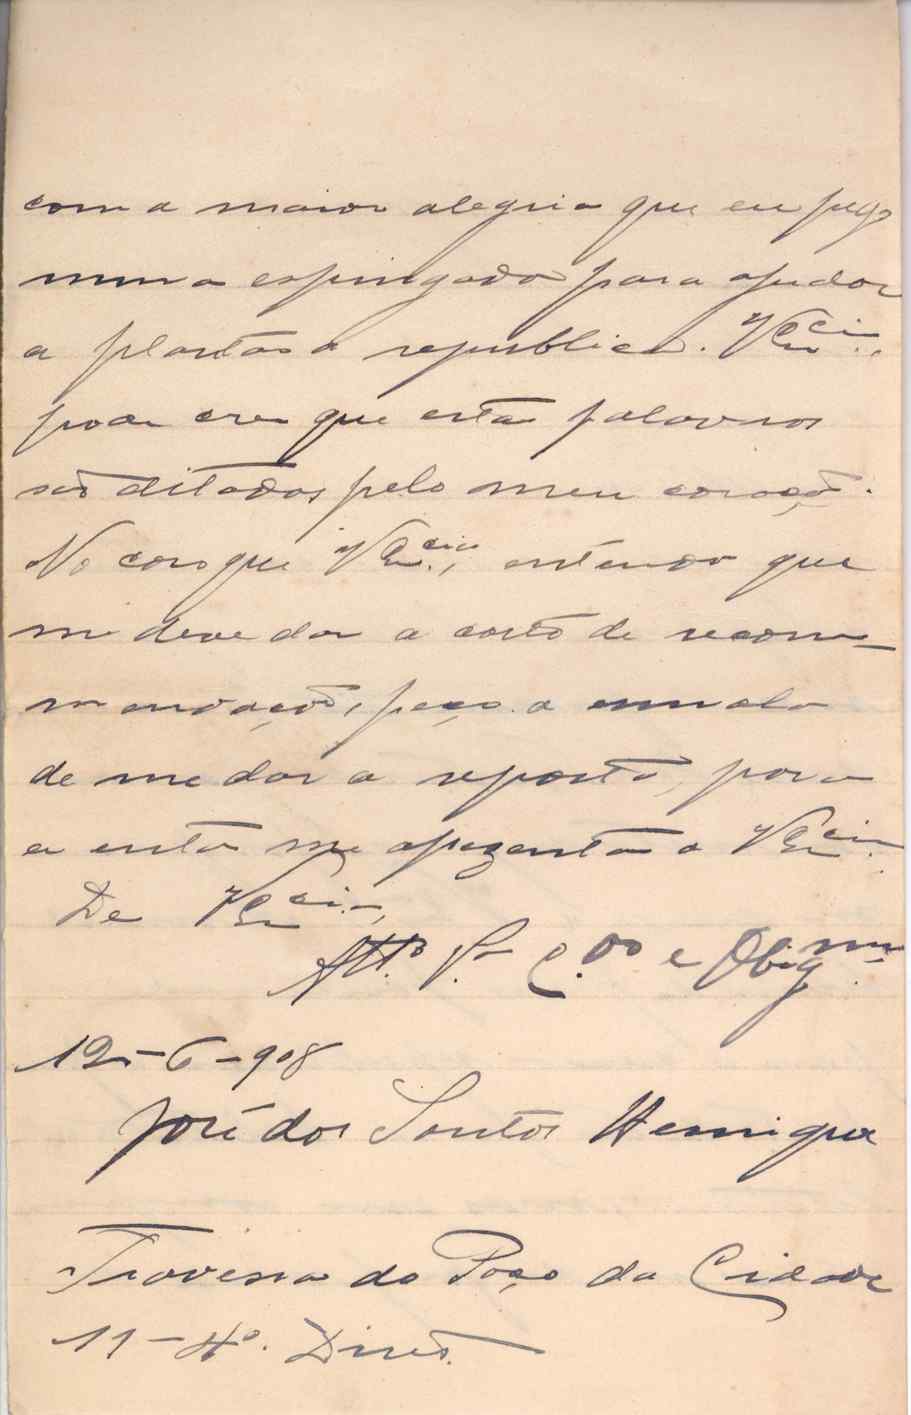 com a maior alegria que eu pego
numa espingada para ajudar
a plantar a republica. V Ex.cia,
pode crer que estas palavras
são ditadas pelo meu coração.
No caso que V Ex.cia, entenda que
me deve dar a carta de recom-
mendação, peço a
de me dar a reposta, para
eu então me aprezentar a V Ex.cia.
De V Ex.cia,
Att.º V.or C.do e Obrig.mo
12-6-908
José dos Santos Henrique
Travessa do Poço da Cidade
11-4º. Direto.